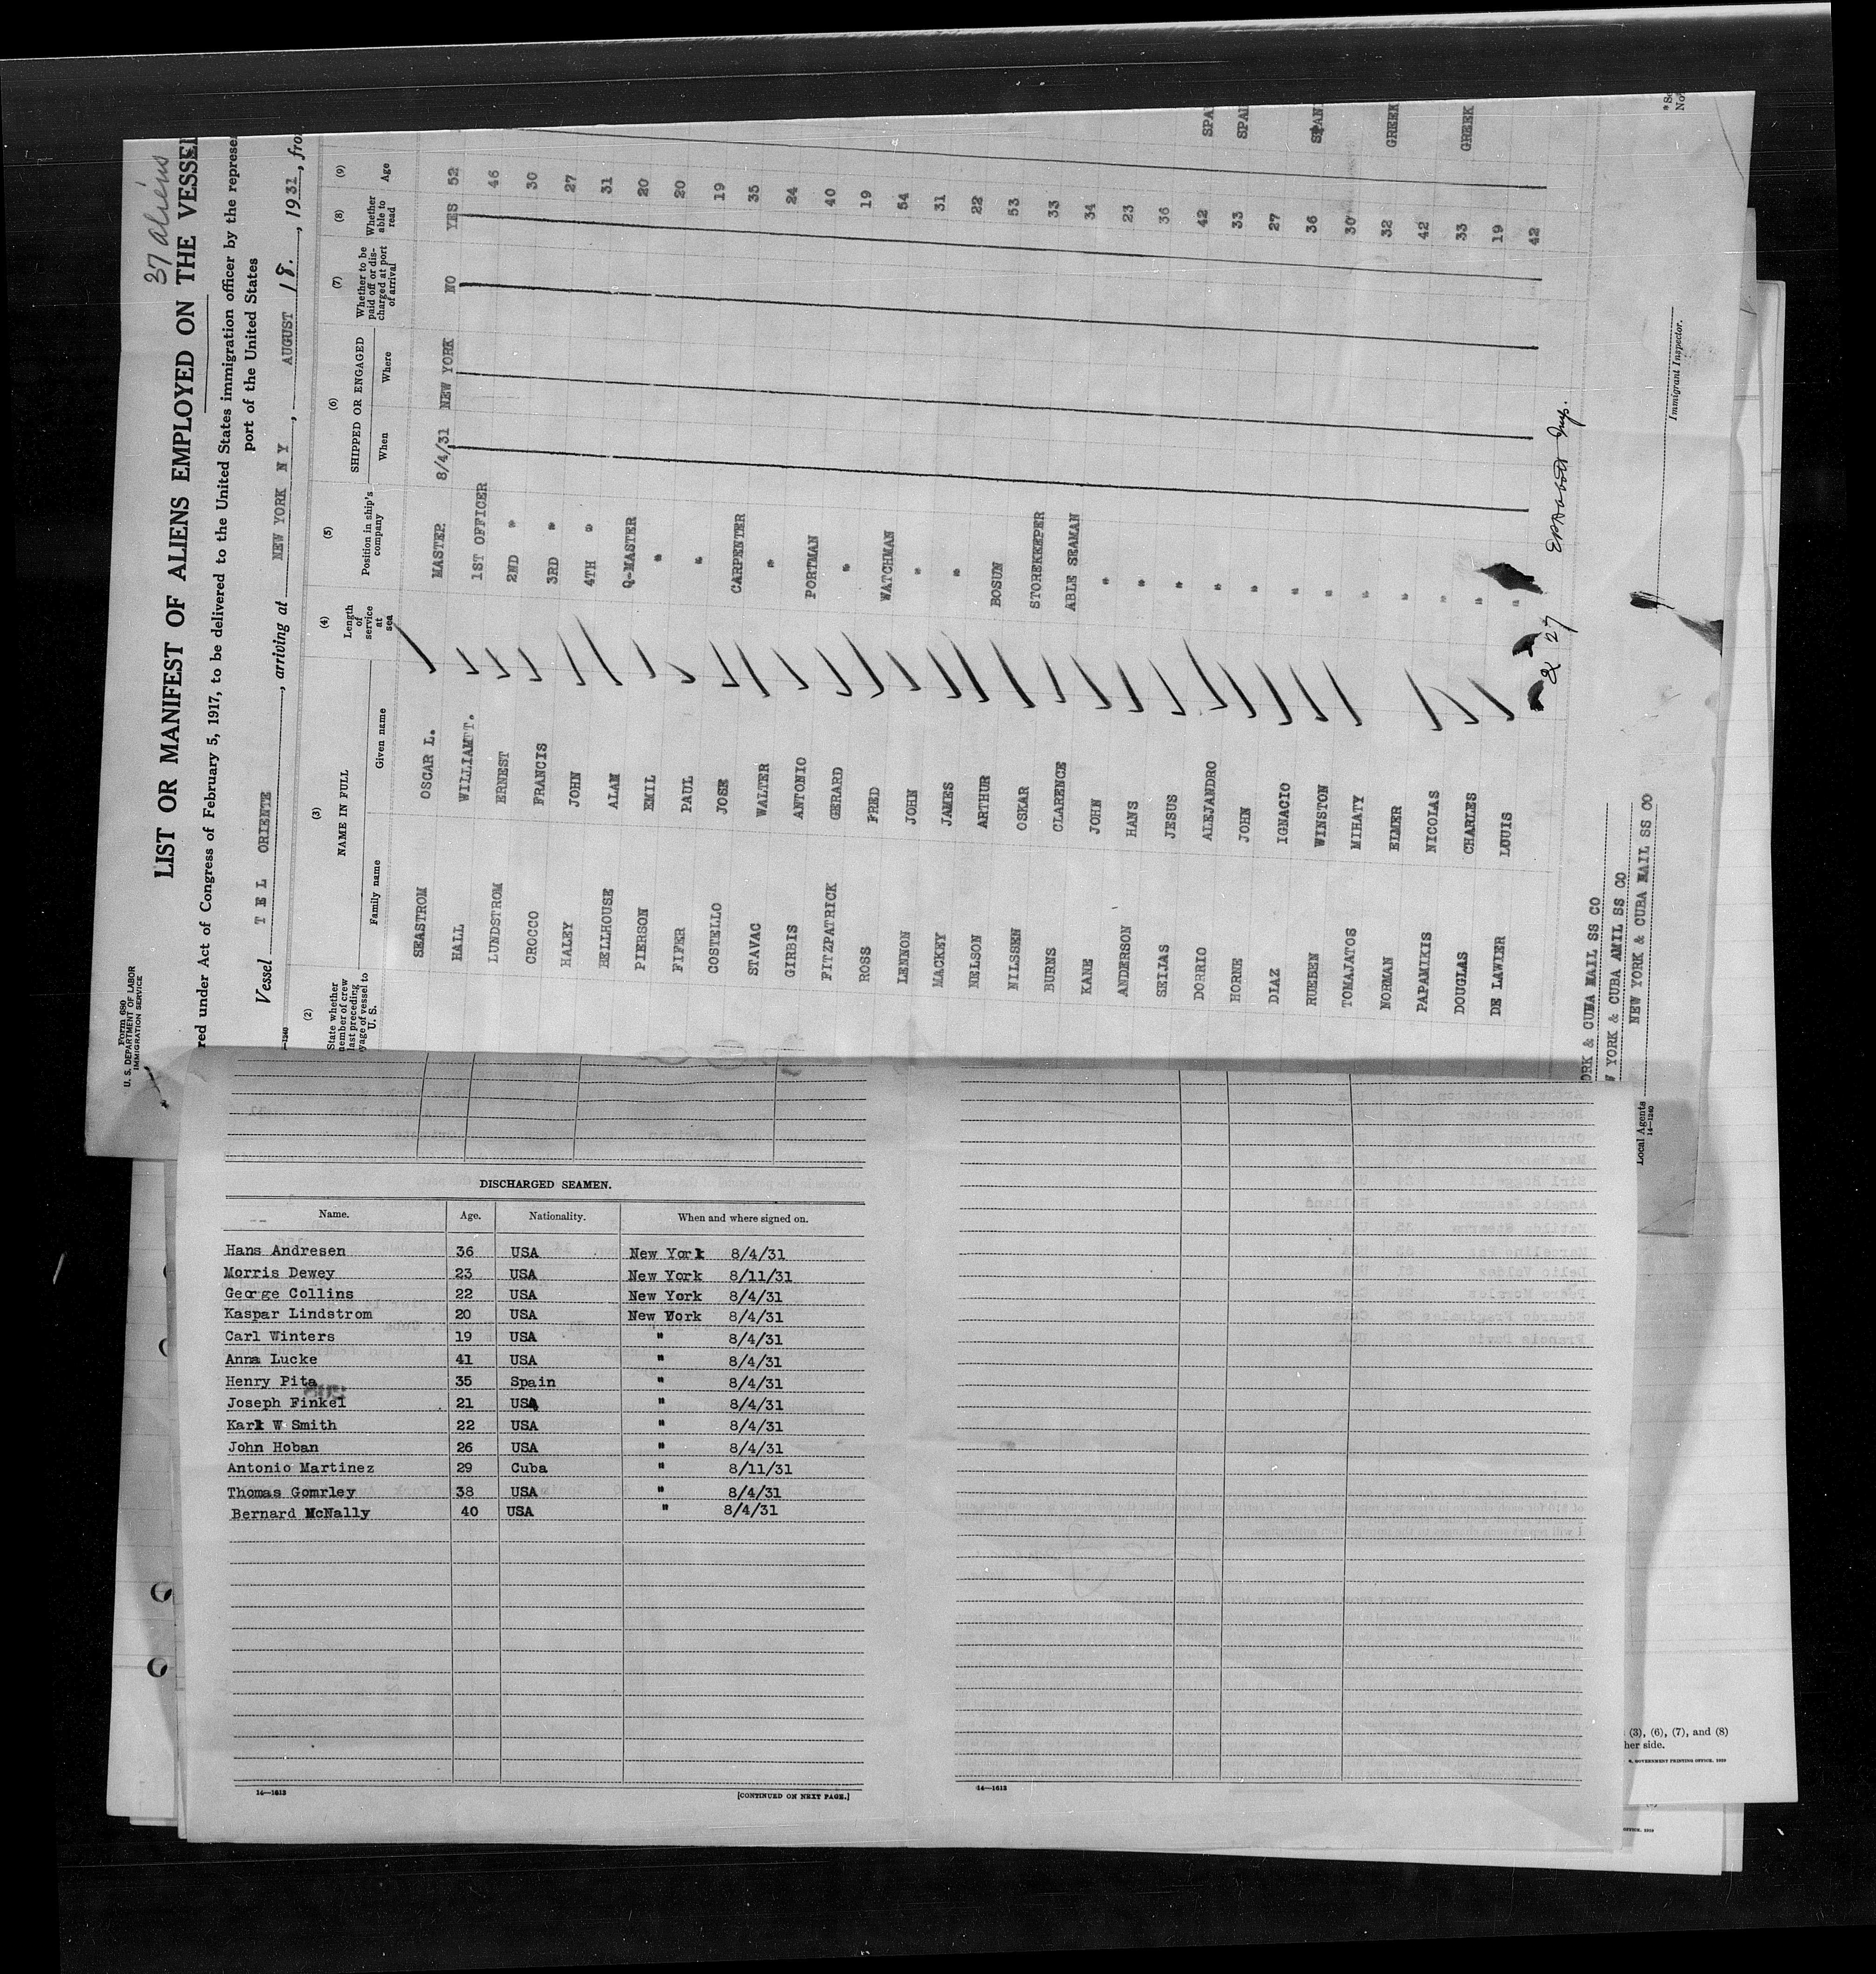 Form 680
U. S. DEPARTMENT OF LABOR
IMMIGRATION SERVICE
37 aliens
LIST OR MANIFEST OF ALIENS EMPLOYED ON THE VESSEL
red under Act of Congress of February 5, 1917, to be delivered to the United States immigration officer by the represen
port of the United States
Vessel T E L ORIENTE, arriving at NEW YORK N Y, AUGUST 18., 1931, from
(2) (3) (4) (5) (6) (7) (8) (9)
State whether member of crew last preceding voyage of vessel to U. S. NAME IN FULL Length of service at sea Position in ship's company SHIPPED OR ENGAGED Whether to be paid off or discharged at port of arrival Whether able to read Age
Family name Given name When Where
SEASTROM OSCAR L. MASTER 8/4/31 NEW YORK NO YES 52
HALL WILLIAM T. 1ST OFFICER 46
LUNDSTROM ERNEST 2ND " 30
CROCCO FRANCIS 3RD " 27
HALEY JOHN 4TH " 31
BELLHOUSE ALAN Q-MASTER 20
PIERSON EMIL " 20
FIFER PAUL " 19
COSTELLO JOSE CARPENTER 35
STAVAC WALTER " 24
GIRBIS ANTONIO PORTMAN 40
FITZPATRICK GERARD " 19
ROSS FRED WATCHMAN 54
LENNON JOHN " 31
MACKEY JAMES " 22
NELSON ARTHUR BOSUN 53
NILSSEN OSKAR STOREKEEPER 33
BURNS CLARENCE ABLE SEAMAN 34
KANE JOHN " 23
ANDERSON HANS " 36
SEIJAS JESUS " 42 SPA
DORRIO ALEJANDRO " 33 SPA
HORNE JOHN " 27
DIAZ IGNACIO " 36 SPAN
RUEBEN WINSTON " 30
TOMAJATOS MIHATY " 32 GREEK
NORMAN ELMER " 42
PAPAMIKIS NICOLAS " 33 GREEK
DOUGLAS CHARLES " 19
DE LAWIER LOUIS " 42
27
ORK & CUMA MAIL SS CO
W YORK & CUBA AMIL SS CO
NEW YORK & CUBA MAIL SS CO
Local Agents
14-1240
Immigrant Inspector.
DISCHARGED SEAMEN.
Name. Age. Nationality. When and where signed on.
Hans Andresen 36 USA New York 8/4/31
Morris Dewey 23 USA New York 8/11/31
George Collins 22 USA New York 8/4/31
Kaspar Lindstrom 20 USA New York 8/4/31
Carl Winters 19 USA " 8/4/31
Anna Lucke 41 USA " 8/4/31
Henry Pita 35 Spain " 8/4/31
Joseph Finkel 21 USA " 8/4/31
Karl W Smith 22 USA " 8/4/31
John Hoban 26 USA " 8/4/31
Antonio Martinez 29 Cuba " 8/11/31
Thomas Gomrley 38 USA " 8/4/31
Bernard McNally 40 USA " 8/4/31
14—1613
[CONTINUED ON NEXT PAGE.]
14—1613
(3), (6), (7), and (8)
her side.
GOVERNMENT PRINTING OFFICE. 1929